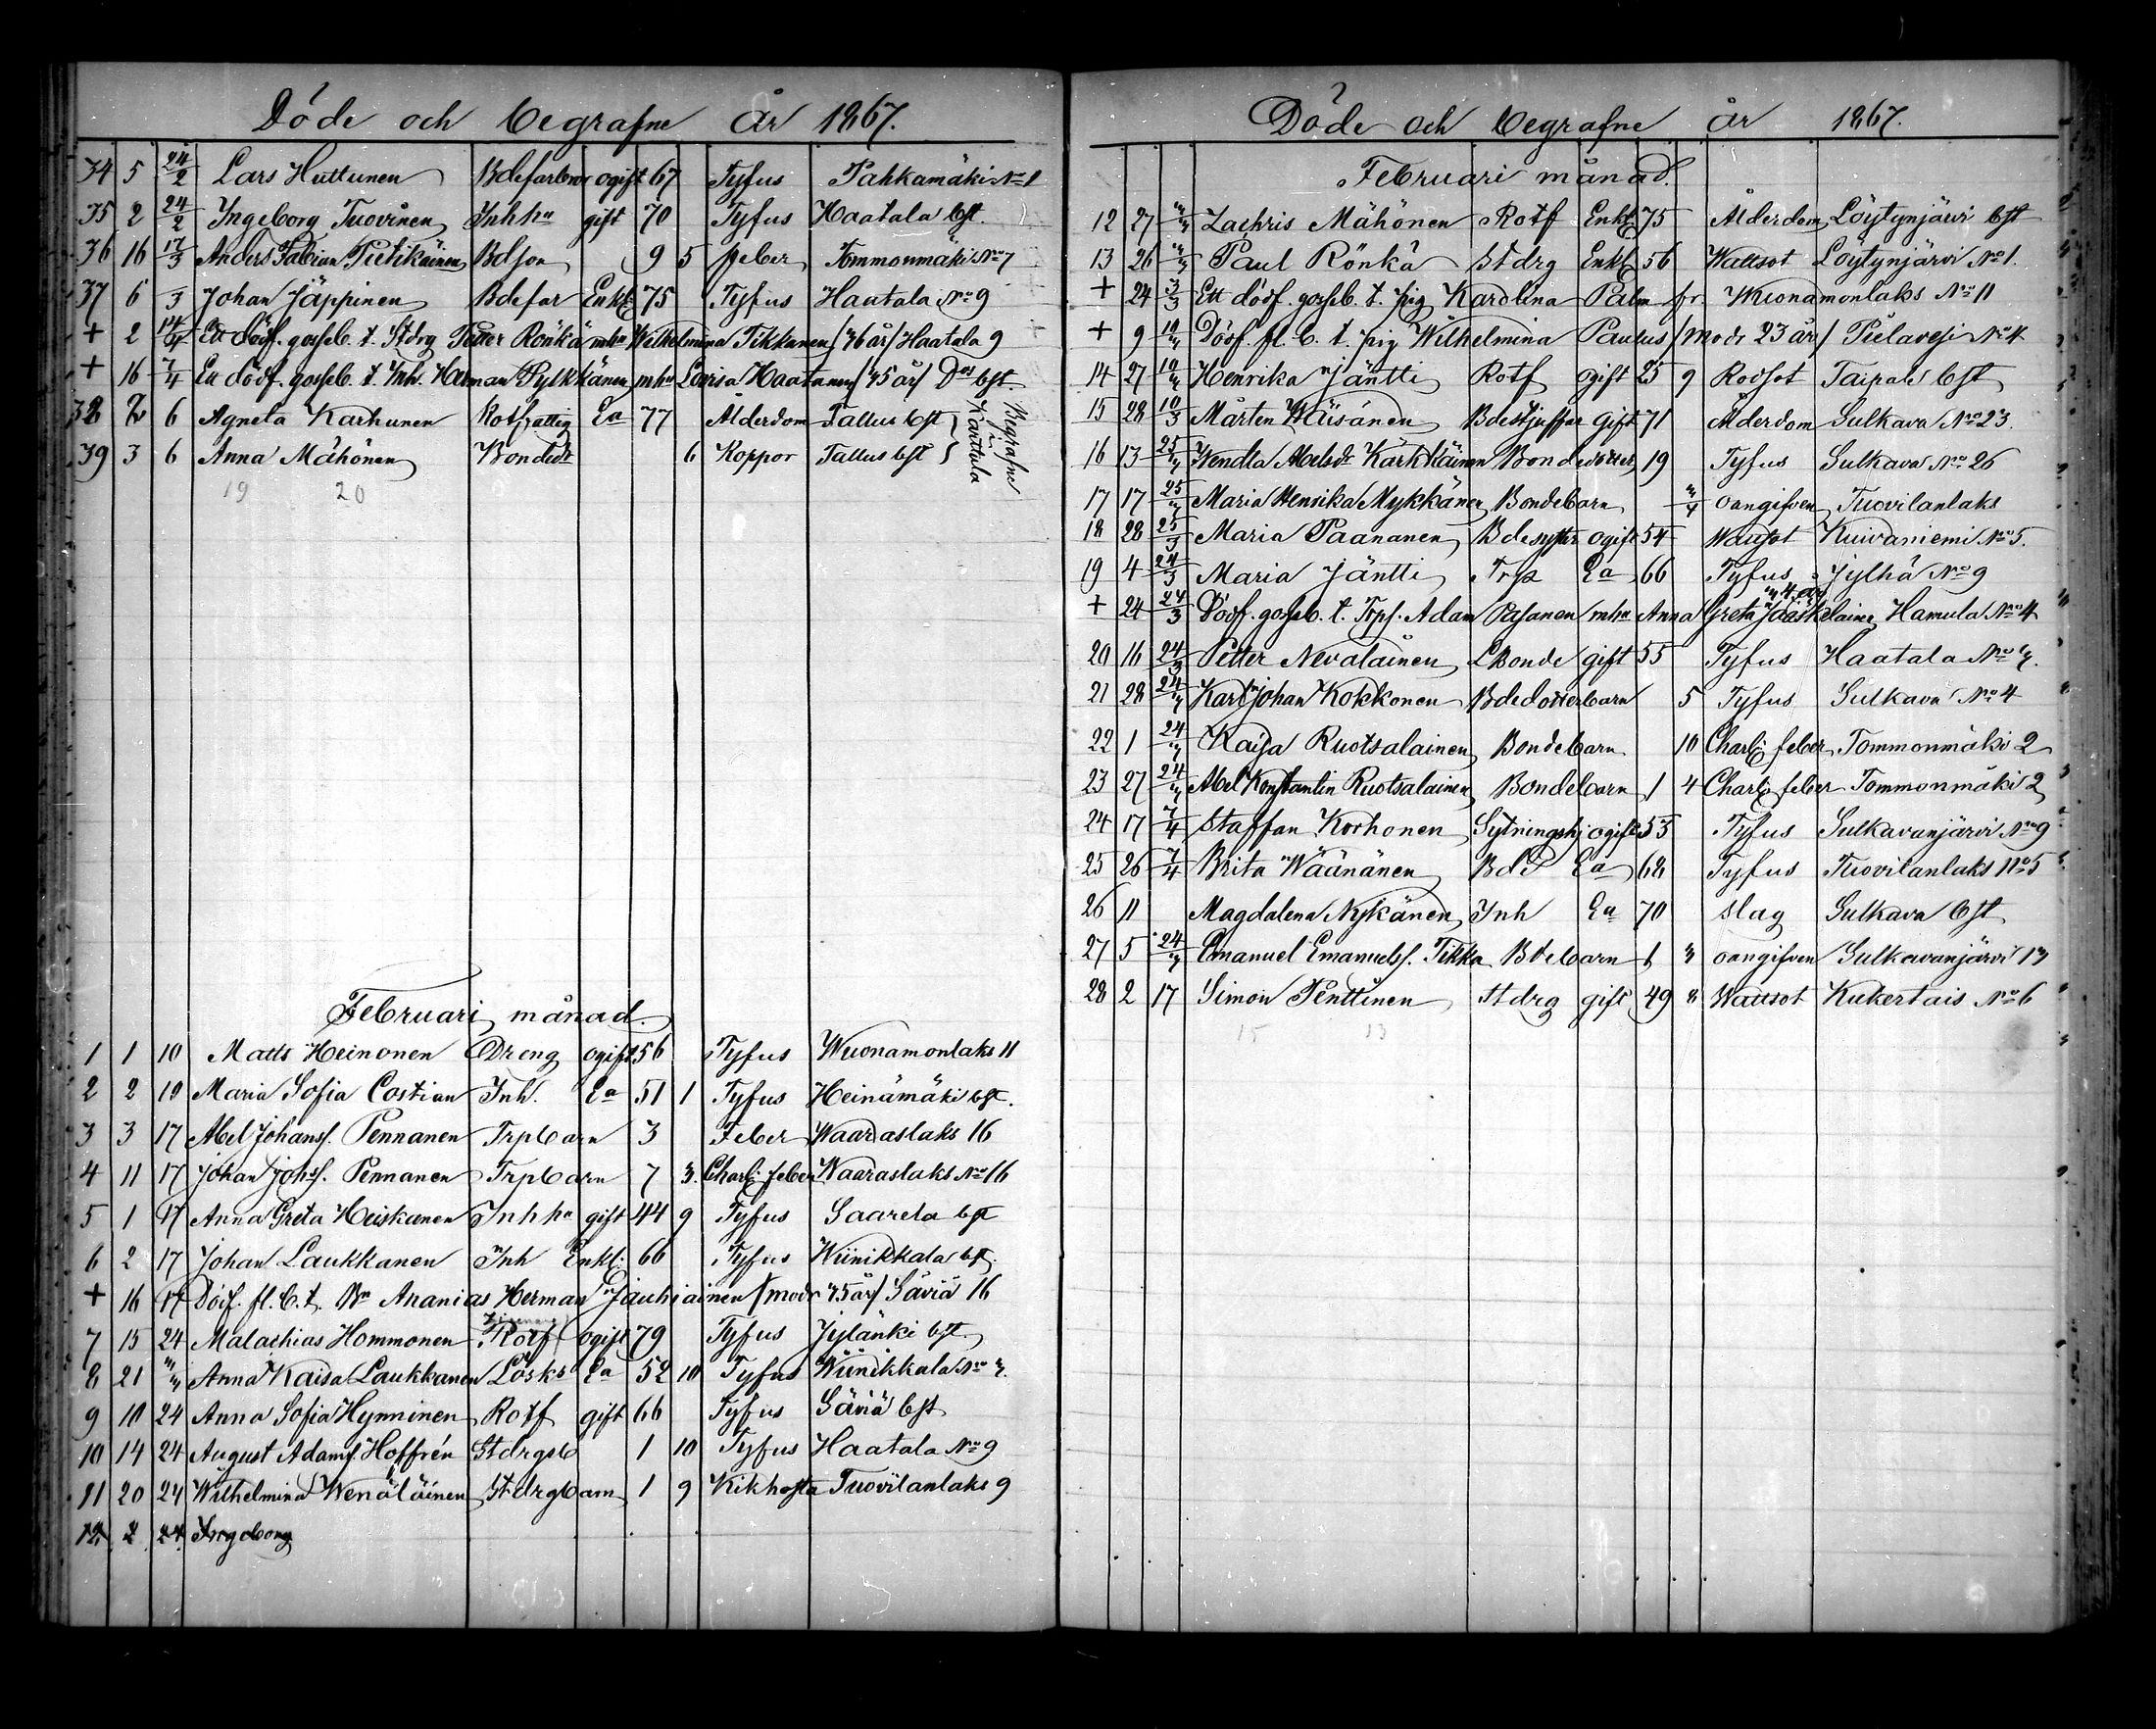 Döde och begrafne År 1867.
34 5 24/2 Lars Huttunen Bdefarbror ogift 67 Tyfus Pahkamäki No 1
35 2 24/2 Ingeborg Tuovinen Inhha gift 70 Tyfus Haatala bst.
36 16 17/3 Anders Fabian Pietikäinen Bdson 9 5 feber Tommonmäki No 7
37 6 3 Johan Jäppinen Bdefar Enkl 75 Tyfus Haatala No 9
+ 2 14/4 Ett dödf. gosseb. t. Stdrg Petter Rönkä mha Wilhelmina Tikkanen /36 år/ Haatala 9
+ 16 7/4 Ett dödf. gosseb. t. Inh. Herman Pylkkänen mha Lovisa Haatanen /35 år/ Das bst
38 2 6 Agneta Karhunen Rotfattig Ea 77 Ålderdom Tallus bst
39 3 6 Anna Mähönen Bondedr 6 Koppor Tallus bst
Begrafne i Karttula
19 20
Februari månad.
1 1 10 Matts Heinonen Dreng ogift 56 Tyfus Wuonamonlaks 11
2 2 10 Maria Sofia Costian Inh. Ea 51 1 Tyfus Heinämäki bst.
3 3 17 Abel Johanss. Pennanen Trpbarn 3 Feber Waaraslaks 16
4 11 17 Johan Johss. Pennanen Trpbarn 7 3. Charl: feber Waaraslaks No 16
5 1 17 Anna Greta Heiskanen Inhha gift 44 9 Tyfus Saarela bst
6 2 17 Johan Laukkanen Inh Enkl: 66 Tyfus Wiinikkala bst.
+ 16 17 Döif. fl. b. t. Bn Ananias Herman Jauhiainen /modr 35 år/ Säviä 16
7 15 24 Malachias Hommonen Rotf ogift 79 Tyfus Jylänki bst.
8 21 " Anna Kaisa Laukkanen Lösks Ea 52 10 Tyfus Wiinikkala No 3.
9 10 24 Anna Sofia Hynninen Rotf gift 66 Tyfus Säviä bst
10 14 24 August Adamss. Hoffrén Stdrgsb 1 10 Tyfus Haatala No 9
11 20 24 Wilhelmina Wenäläinen Stdrgbarn 1 9 Kikhosta Tuovilanlaks 9
12 2 24 Ingeborg
Döde och begrafne år 1867.
Februari månad.
12 27 Zachris Mähönen Rotf Enkl 75 Ålderdom Löytynjärvi bst
13 26 Paul Rönkä Stdrg Enkl 56 Wattsot Löytynjärvi No 1.
+ 24 3/3 Ett dödf. gosseb. t. pig Karolina Palm fr. Wuonamonlaks No 11
+ 9 10/3 Dödf. fl. b. t. pig Wilhelmina Paulus /modr 23 år/ Pielavesi No 4
14 27 10/3 Henrika Jäntti Rotf ogift 25 9 Rodsot Taipale bst
15 28 10/3 Mårten Wäisänen Bdestjuffar Gift 71 Ålderdom Sulkava No 23.
16 13 25/3 Wendla Abelsdr Kärkkäinen Bondedotter 19 Tyfus Sulkava No 26
17 17 25/3 Maria Henrika Mykkänen Bondebarn 3/4 oangifven Tuovilanlaks
18 28 25/3 Maria Paananen Bdesyster ogift 54 Wattsot Kuivaniemi No 5.
19 4 24/3 Maria Jäntti Trp Ea 66 Tyfus Jylhä No 9
+ 24 24/3 Dödf. gosseb. t. Trps. Adam Pasanen mha Anna Greta Jääskeläinen Hamula No 4
20 16 24/3 Petter Nevalainen LBonde gift 55 Tyfus Haatala No 3.
21 28 24/3 Karl Johan Kokkonen Bdedotterbarn 5 Tyfus Sulkava No 4
22 1 24/3 Kaisa Ruotsalainen Bondebarn 10 Charl: feber Tommonmäki 2
23 27 24/3 Abel Konstantin Ruotsalainen Bondebarn 1 4 Charl: feber Tommonmäki 2
24 17 7/4 Staffan Korhonen Sytningshj ogift 53 Tyfus Sulkavanjärvi No 9
25 26 7/4 Brita Wäänänen Ea 68 Tyfus Tuovilanlaks No 5
26 11 Magdalena Nykänen Inh Ea 70 slag Sulkava bst
27 5 24/3 Emanuel Emanuelss. Tikka Bdebarn 6 " oangifven Sulkavanjärvi 13
28 2 17 Simon Penttinen Stdrg gift 49 " Wattsot Kukertais No 6
15 13